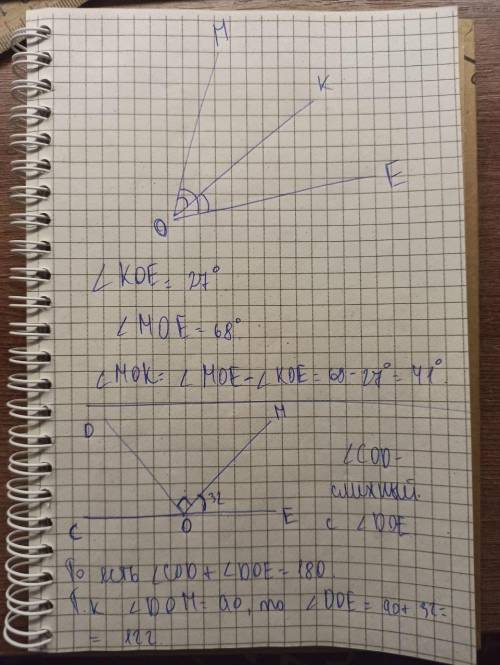 М
К
Е
О
∠KOE = 27°
∠MOE = 68°
∠MOK = ∠MOE - ∠KOE = 68 - 27° = 41°
D
M
32
C
O
E
∠COD -
смежный
с ∠DOE
То есть ∠COD + ∠DOE = 180
Т.к ∠DOM = 90, то ∠DOE = 90 + 32 =
= 122